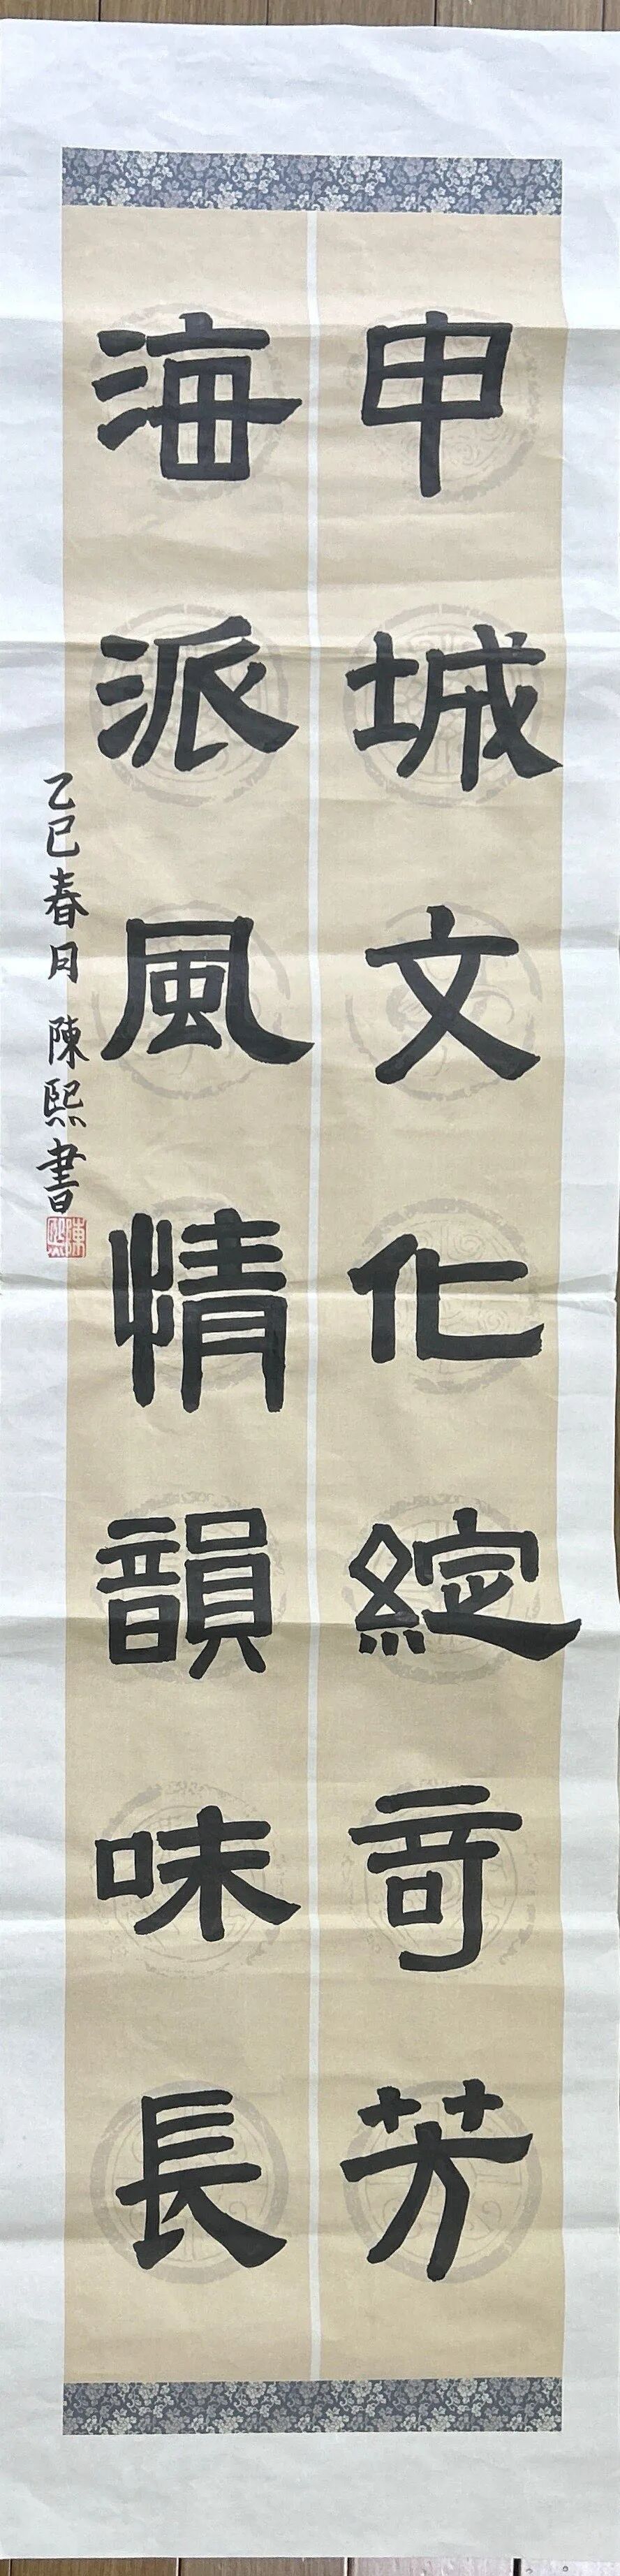 申城文化綻竒芳
海派風情韻味長
乙巳春月 陳熙書
陳熙